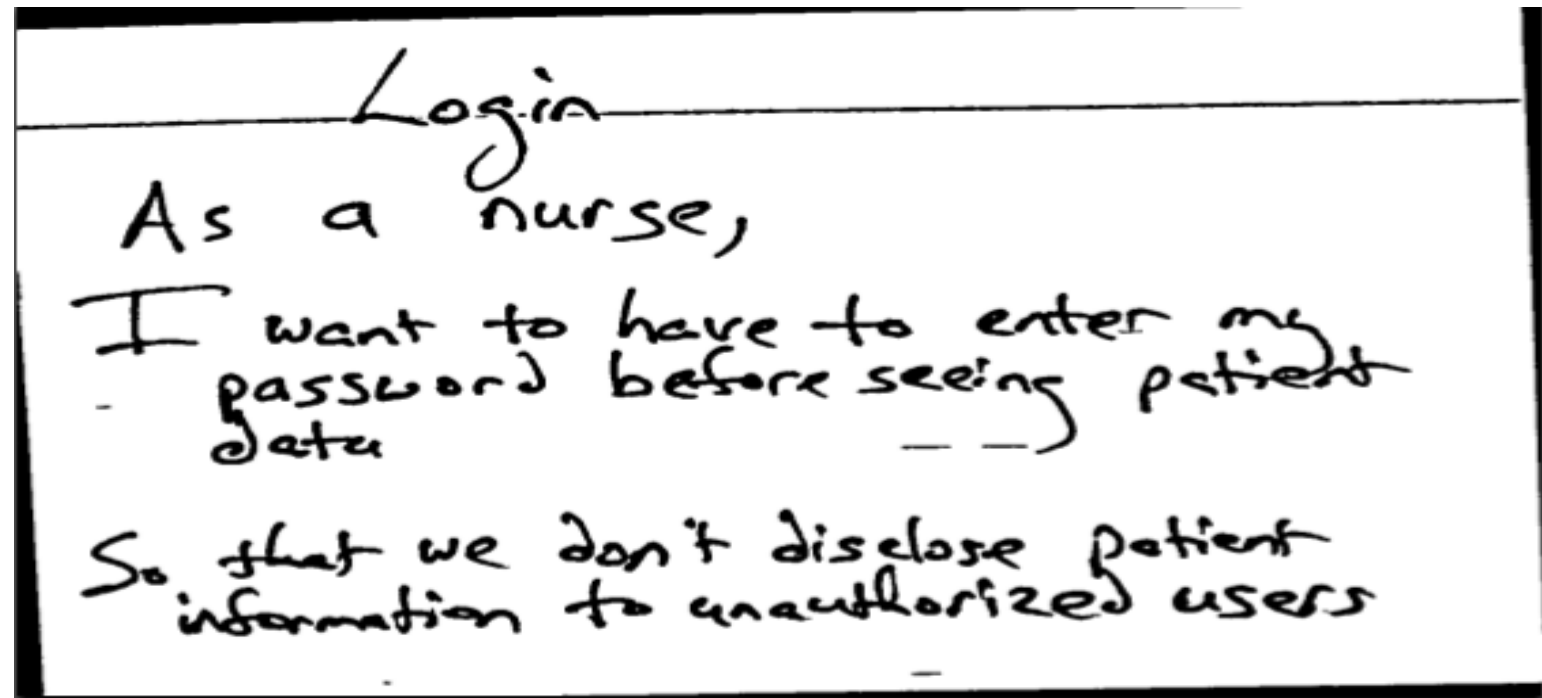 Login
As a nurse,
I want to have to enter my
password before seeing patient
data
So that we don't disclose patient
information to unauthorized users